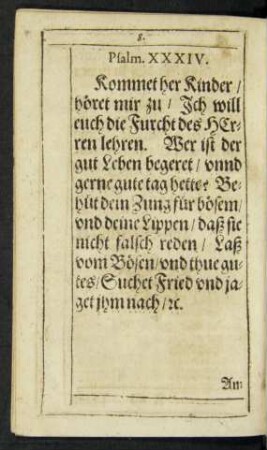 8.
Psalm. XXXIV.
Kommet her Kinder /
höret mir zu / Jch will
euch die Furcht des HEr-
ren lehren. Wer ist der
gut Leben begeret / vnnd
gerne gute tag hette? Be-
hüt dein Zung für bösem /
vnd deine Lippen / daß sie
nicht falsch reden / Laß
vom Bösen / vnd thue gu-
tes / Suchet Fried vnd ja-
get jhm nach / ꝛc.
An: